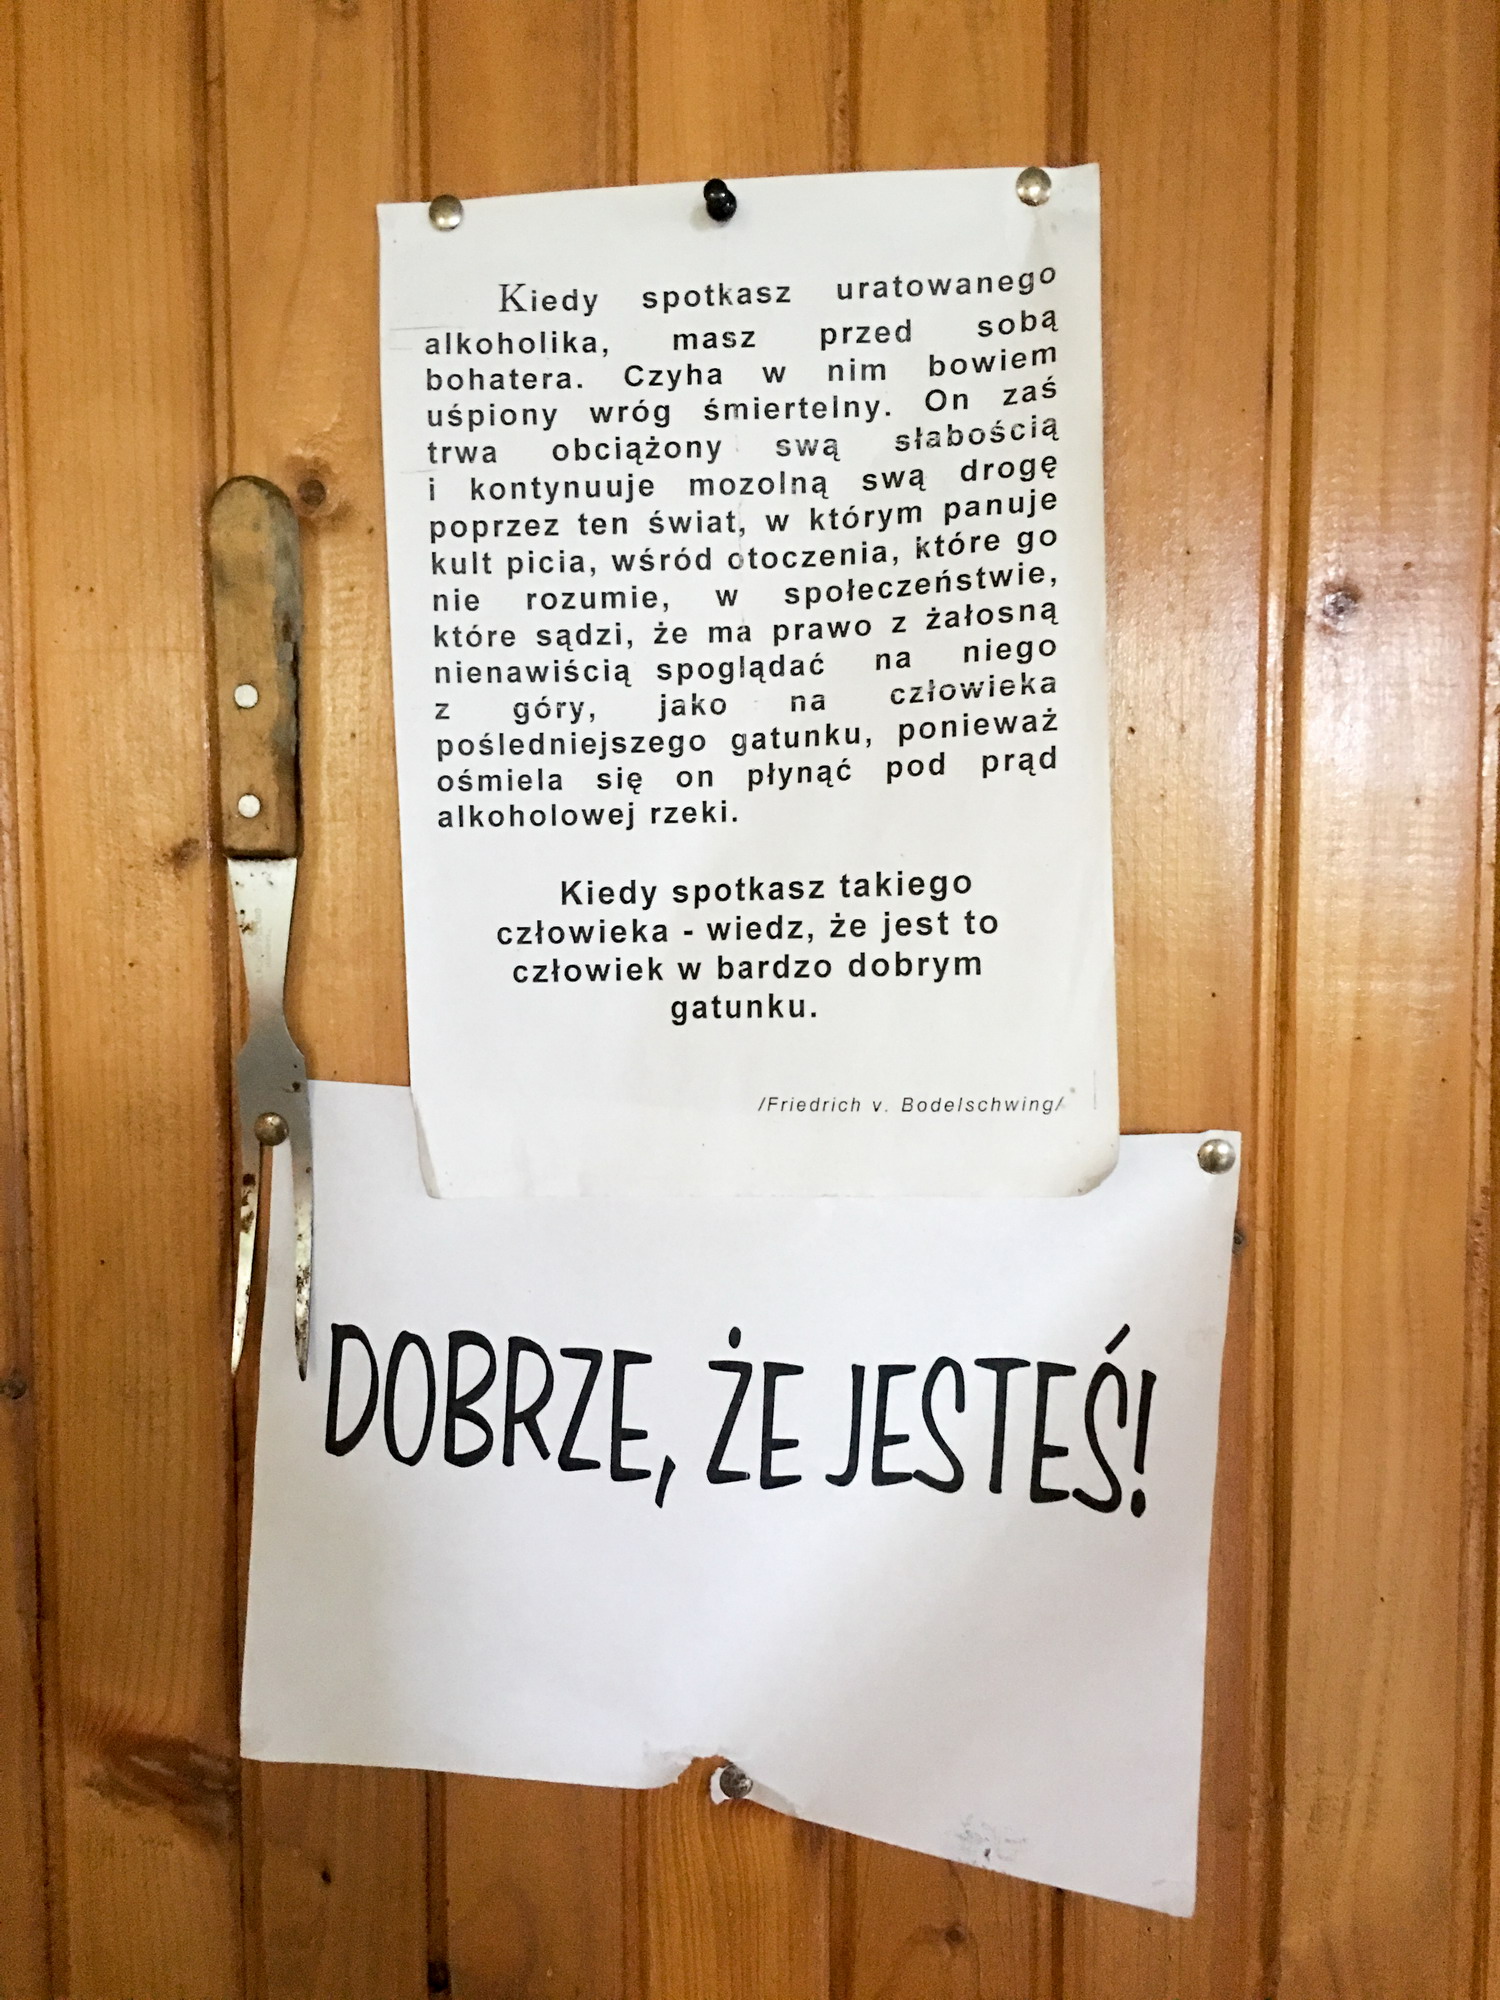 Kiedy spotkasz uratowanego
alkoholika, masz przed sobą
bohatera. Czyha w nim bowiem
uśpiony wróg śmiertelny. On zaś
trwa obciążony swą słabością
i kontynuuje mozolną swą drogę
poprzez ten świat, w którym panuje
kult picia, wśród otoczenia, które go
nie rozumie, w społeczeństwie,
które sądzi, że ma prawo z żałosną
nienawiścią spoglądać na niego
z góry, jako na człowieka
pośledniejszego gatunku, ponieważ
ośmiela się on płynąć pod prąd
alkoholowej rzeki.
Kiedy spotkasz takiego
człowieka - wiedz, że jest to
człowiek w bardzo dobrym
gatunku.
/Friedrich v. Bodelschwing/
DOBRZE, ŻE JESTEŚ!